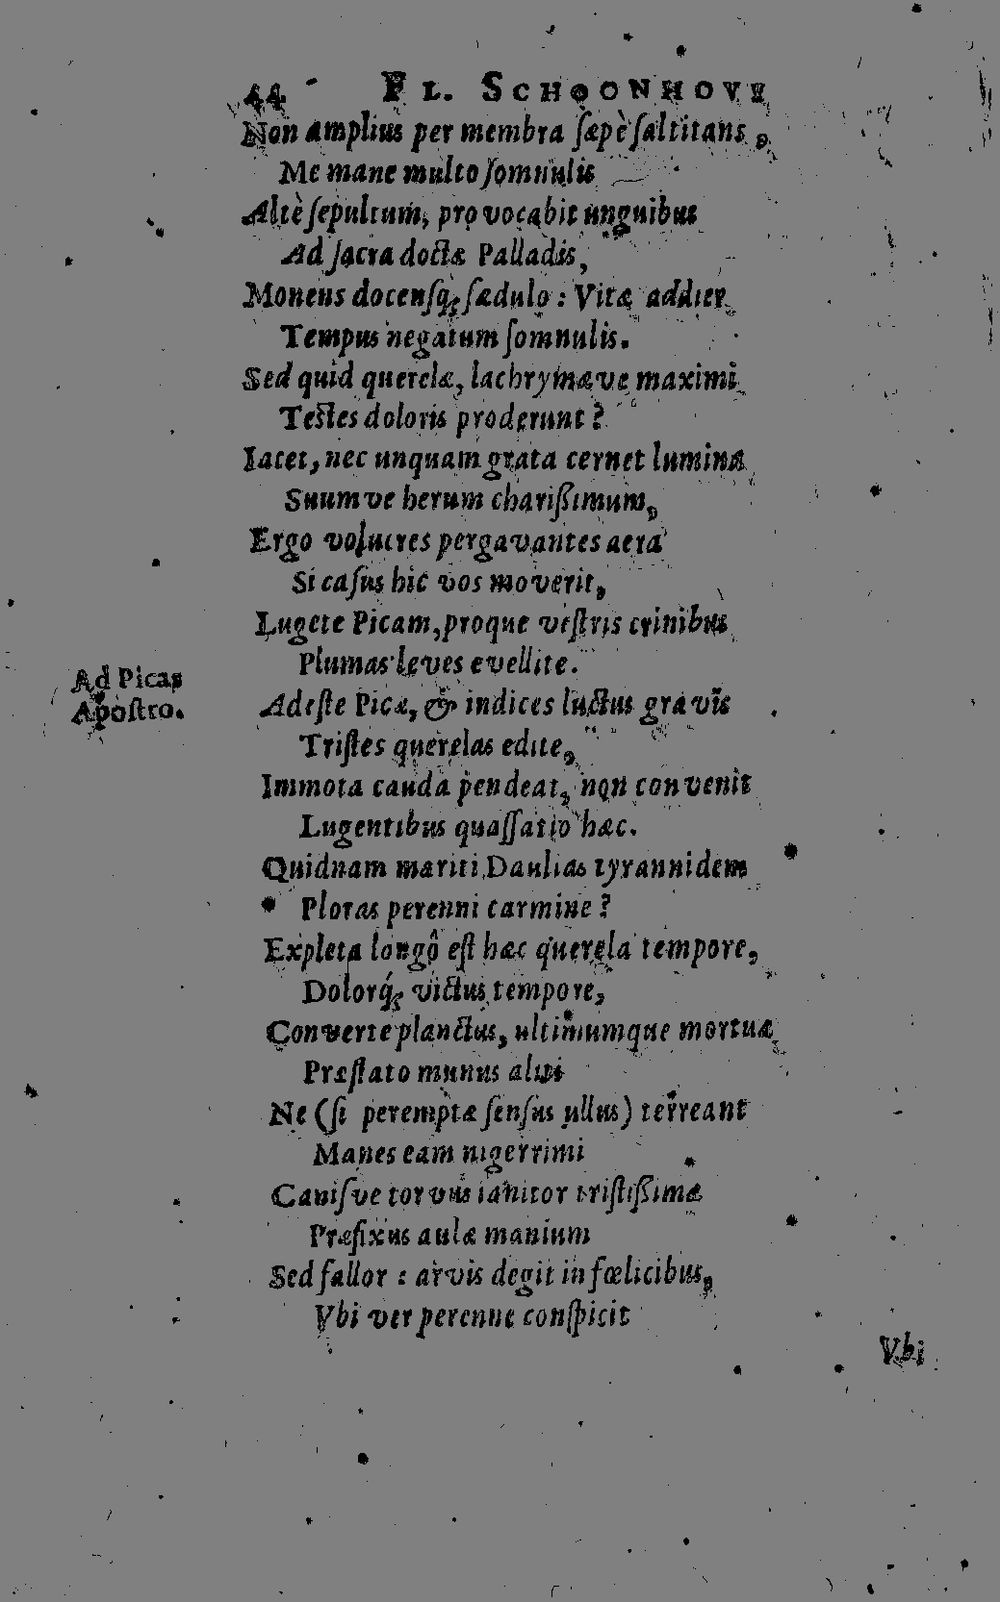 44 FL. SCHOONHOVII
Non amplius per membra ſæpè ſaltitans,
Me mane multo ſomnulis
Altè ſepultum, provocabit unguibus
Ad ſacra doctæ Palladis,
Monens docenſq; ſædulo: Vitæ addier
Tempus negatum ſomnulis.
Sed quid querelæ, lachrymæve maximi
Testes doloris proderunt?
Iacet, nec unquam grata cernet lumina
Suumve herum charißimum,
Ergo volucres pergavantes aera
Si caſus hic vos moverit,
Lugete Picam, proque veſtris crinibus
Plumas leves evellite.
Ad Picas
Apoſtro.
Adeſte Picæ, & indices luctus gravis
Triſtes querelas edite,
Immota cauda pendeat, non convenit
Lugentibus quaſſatio hæc.
Quidnam mariti Daulias tyrannidem
Ploras perenni carmine?
Expleta longô eſt hæc querela tempore,
Dolorq́; victus tempore,
Converte planctus, ultimumque mortuæ
Præſtato munus aliti
Ne (ſi peremptæ ſenſus ullus) terreant
Manes eam nigerrimi
Caniſve torvus ianitor triſtißimæ
Præfixus aulæ manium
Sed fallor: arvis degit in fœlicibus,
Vbi ver perenne conſpicit
Vbi